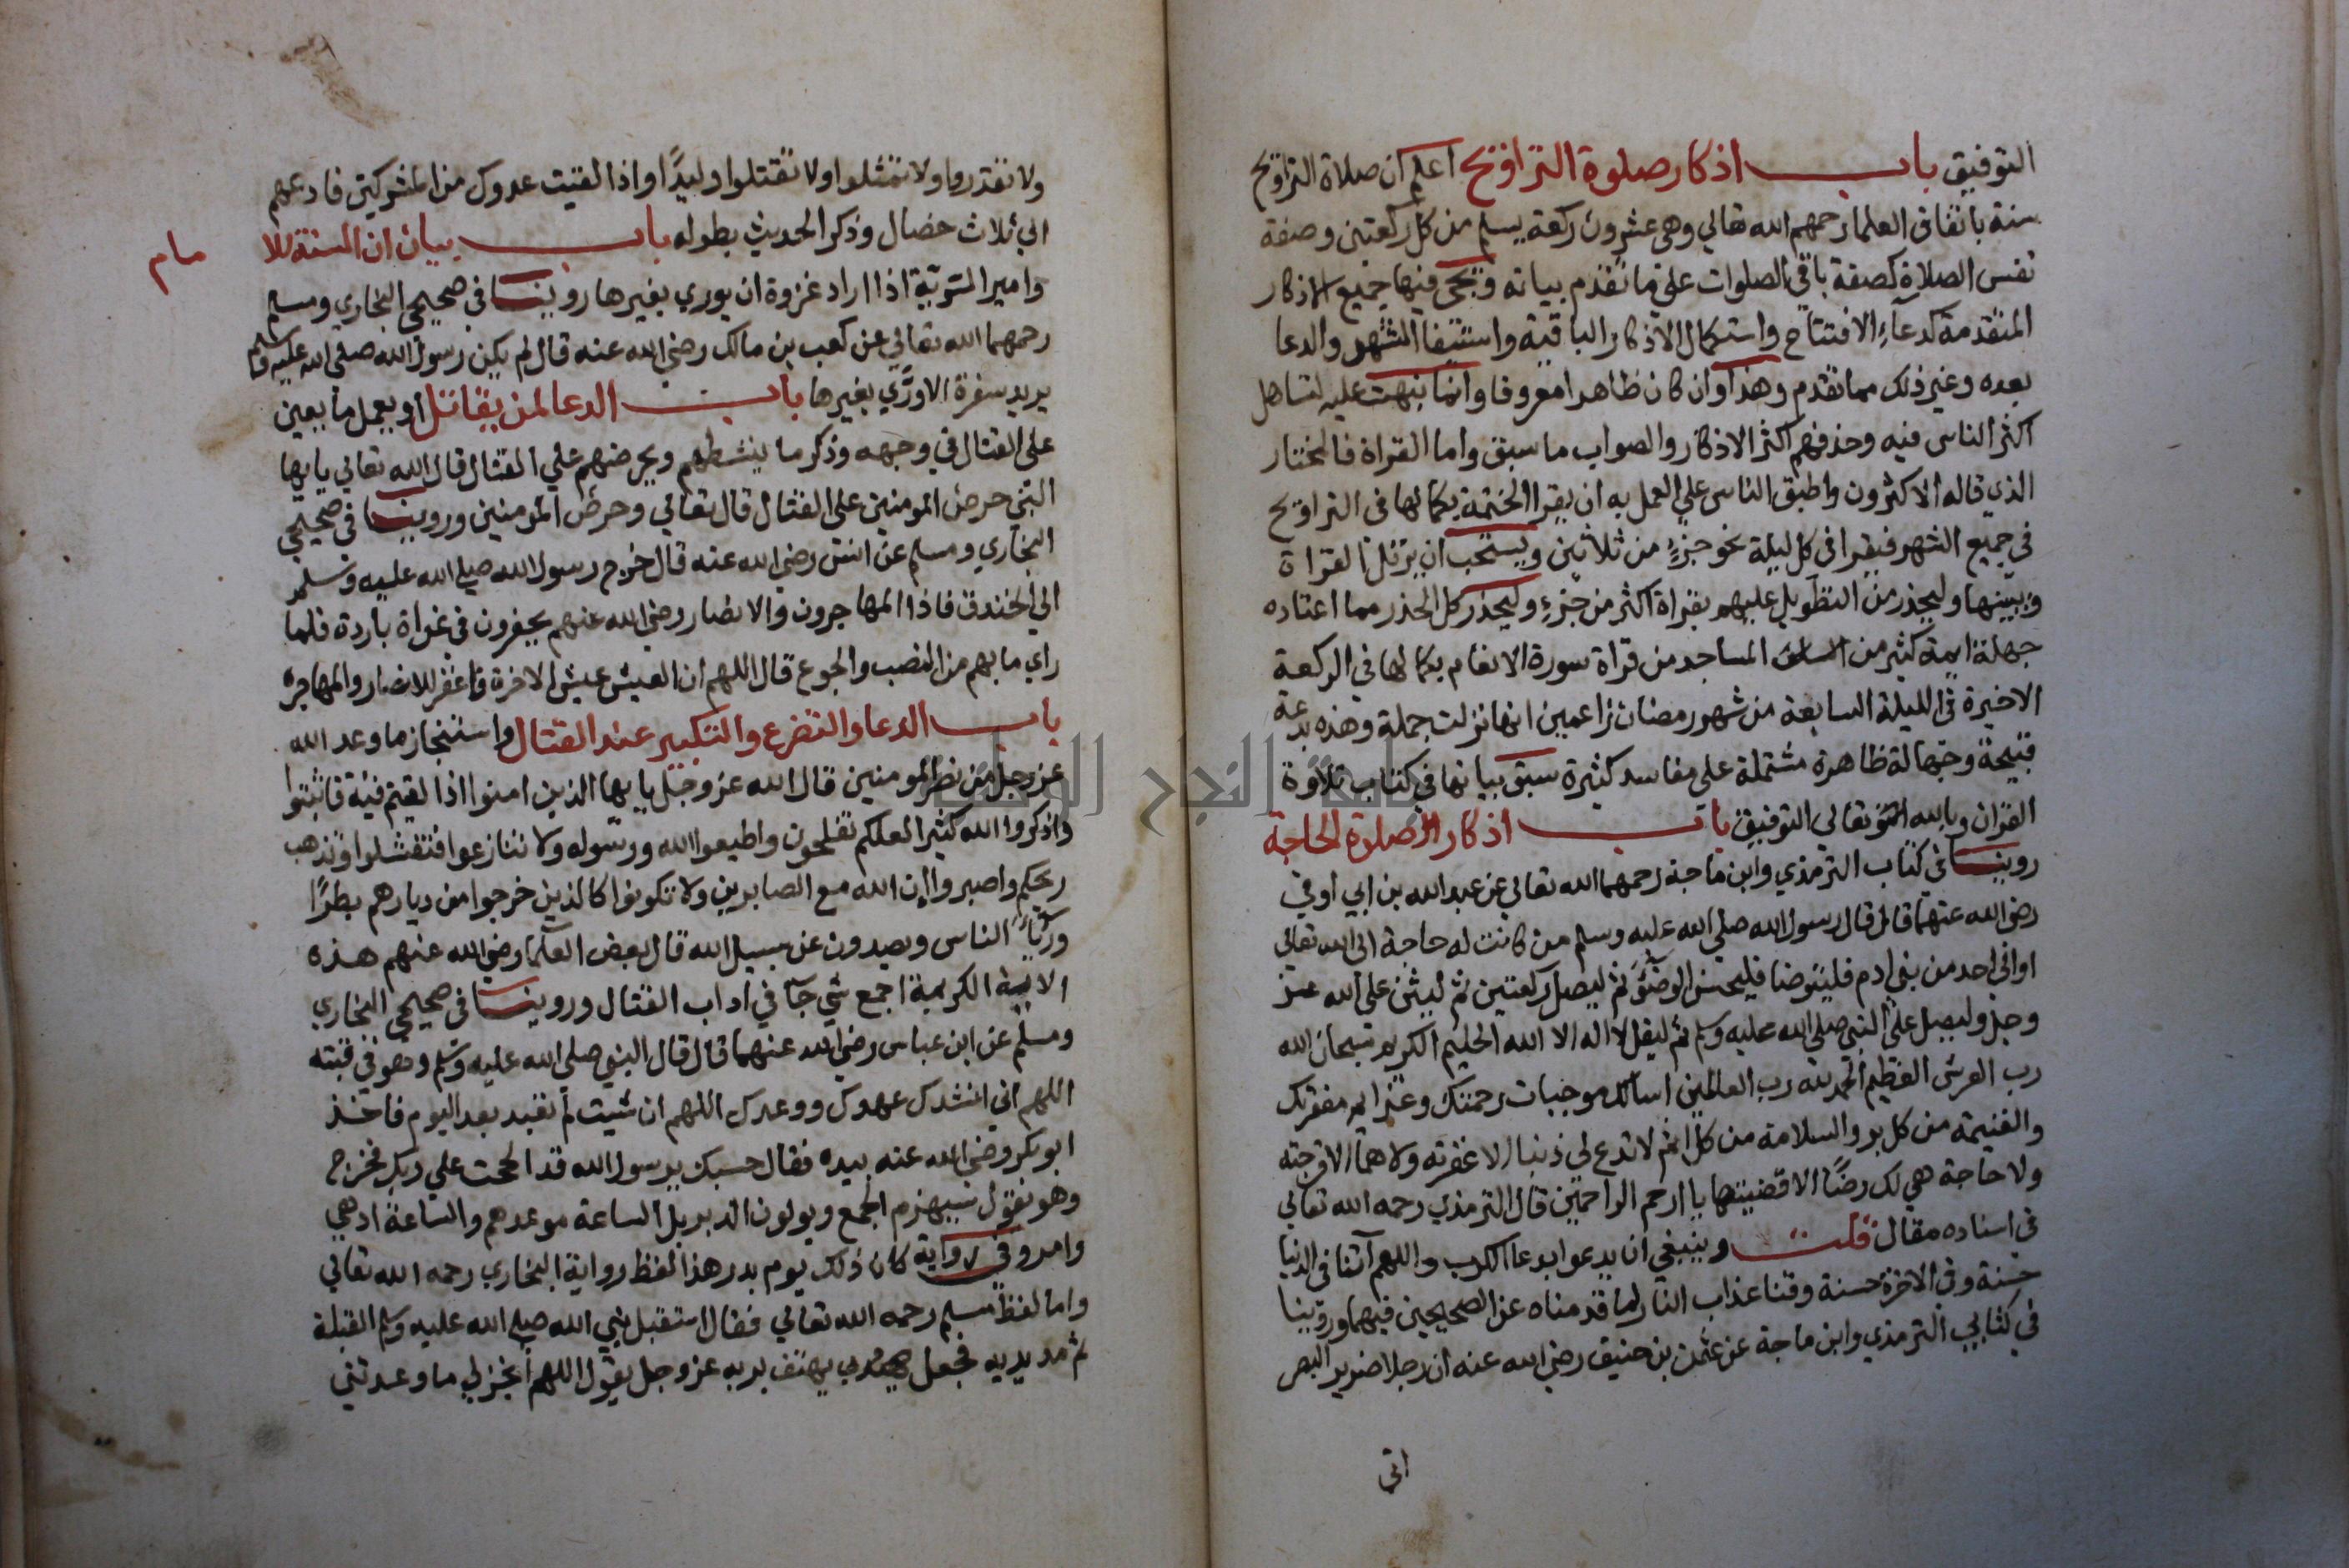 التوفيق باب اذكار صلوة التراويح اعلم ان صلاة التراويح
سنة باتفاق العلما رحمهم الله تعالي وهي عشرون ركعة يسلم من كل ركعتين وصفة
نفس الصلاة كصفة باقي الصلوات علي ما تقدم بيانه ويجي فيها جميع الاذكار
المتقدمة كدعاء الافتتاح واستكمال الاذكار الباقية واستيفا التشهد والدعا
بعده وغير ذلك مما تقدم وهذا وان كان ظاهرا معروفا وانما نبهت عليه لتساهل
اكثر الناس فيه وحذفهم اكثر الاذكار والصواب ما سبق واما القراة فالمختار
الذي قاله الاكثرون واطبق الناس علي العمل به ان يقرا الختمة بكمالها في التراويح
في جميع الشهر فيقرا في كل ليلة نحو جزء من ثلاثين ويستحب ان يرتل القراة
ويبينها وليحذر من التطويل عليهم بقراة اكثر من جزء وليحذر كل الحذر مما اعتاده
جهلة ايمة كثير من المساجد من قراة سورة الانعام بكمالها في الركعة
الاخيرة في الليلة السابعة من شهر رمضان زاعمين انها نزلت جملة وهذه بدعة
قبيحة وجهالة ظاهرة مشتملة علي مفاسد كثيرة سبق بيانها في كتاب تلاوة
القران وبالله تعالي التوفيق باب اذكار صلوة الحاجة
روينا في كتاب الترمذي وابن ماجة رحمهما الله تعالي عن عبد الله بن ابي اوفي
رضي الله عنهما قال قال رسول الله صلي الله عليه وسلم من كانت له حاجة الي الله تعالي
او الي احد من بني ادم فليتوضا فليحسن الوضوء ثم ليصل ركعتين ثم ليثن علي الله عز
وجل وليصل علي النبي صلي الله عليه وسلم ثم ليقل لا اله الا الله الحليم الكريم سبحان الله
رب العرش العظيم الحمد لله رب العالمين اسالك موجبات رحمتك وعزايم مغفرتك
والغنيمة من كل بر والسلامة من كل اثم لا تدع لي ذنبا الا غفرته ولا هما الا فرجته
ولا حاجة هي لك رضًا الا قضيتها يا ارحم الراحمين قال الترمذي رحمه الله تعالي
في اسناده مقال قلت وينبغي ان يدعوا بدعا الكرب واللهم آتنا في الدنيا
حسنة وفي الاخرة حسنة وقنا عذاب النار لما قدمناه عن الصحيحين فيهما وروينا
في كتابي الترمذي وابن ماجة عن عثمن بن حنيف رضي الله عنه ان رجلا ضرير البصر
اتي
ولا تغدروا ولا تمثلوا ولا تقتلوا وليدًا واذا لقيت عدوك من المشركين فادعهم
الي ثلاث خصال وذكر الحديث بطوله باب بيان ان السنة للامام
وامير السرية اذا اراد غزوة ان يوري بغيرها روينا في صحيحي البخاري ومسلم
رحمهما الله تعالي عن كعب بن مالك رضي الله عنه قال لم يكن رسول الله صلي الله عليه وسلم
يريد سفرة الا ورّي بغيرها باب الدعا لمن يقاتل او يعمل ما يعين
علي القتال في وجهه وذكر ما ينشطهم ويحرضهم علي القتال قال الله تعالي يا يها
النبي حرض المومنين علي القتال قال تعالي وحرض المومنين وروينا في صحيحي
البخاري ومسلم عن انس رضي الله عنه قال خرج رسول الله صلي الله عليه وسلم
الي الخندق فاذا المهاجرون والانصار رضي الله عنهم يحفرون في غداة باردة فلما
راي ما بهم من النصب والجوع قال اللهم ان العيش عيش الاخرة فاغفر للانصار والمهاجره
باب الدعا والتضرع والتكبير عند القتال واستنجاز ما وعد الله
عز وجل من نصر المومنين قال الله عز وجل يا يها الذين امنوا اذا لقيتم فية فاثبتوا
واذكروا الله كثيرا لعلكم تفلحون واطيعوا الله ورسوله ولا تنازعوا فتفشلوا وتذهب
ريحكم واصبروا ان الله مع الصابرين ولا تكونوا كالذين خرجوا من ديارهم بطرًا
ورياء الناس ويصدون عن سبيل الله قال بعض العلما رضي الله عنهم هذه
الاية الكريمة اجمع شي جآ في اداب القتال وروينا في صحيحي البخاري
ومسلم عن ابن عباس رضي الله عنهما قال قال النبي صلي الله عليه وسلم وهو في قبته
اللهم اني انشدك عهدك ووعدك اللهم ان شيت لم تعبد بعد اليوم فاخذ
ابو بكر رضي الله عنه بيده فقال حسبك يرسول الله قد الححت علي ربك فخرج
وهو يقول سيهزم الجمع ويولون الدبر بل الساعة موعدهم والساعة ادهي
وامر وفي رواية كان ذلك يوم بدر هذا لفظ رواية البخاري رحمه الله تعالي
واما لفظ مسلم رحمه الله تعالي فقال استقبل نبي الله صلي الله عليه وسلم القبلة
ثم مد يديه فجعل يهتف بربه عز وجل يقول اللهم انجز لي ما وعدتني
جامعة النجاح الوطنية